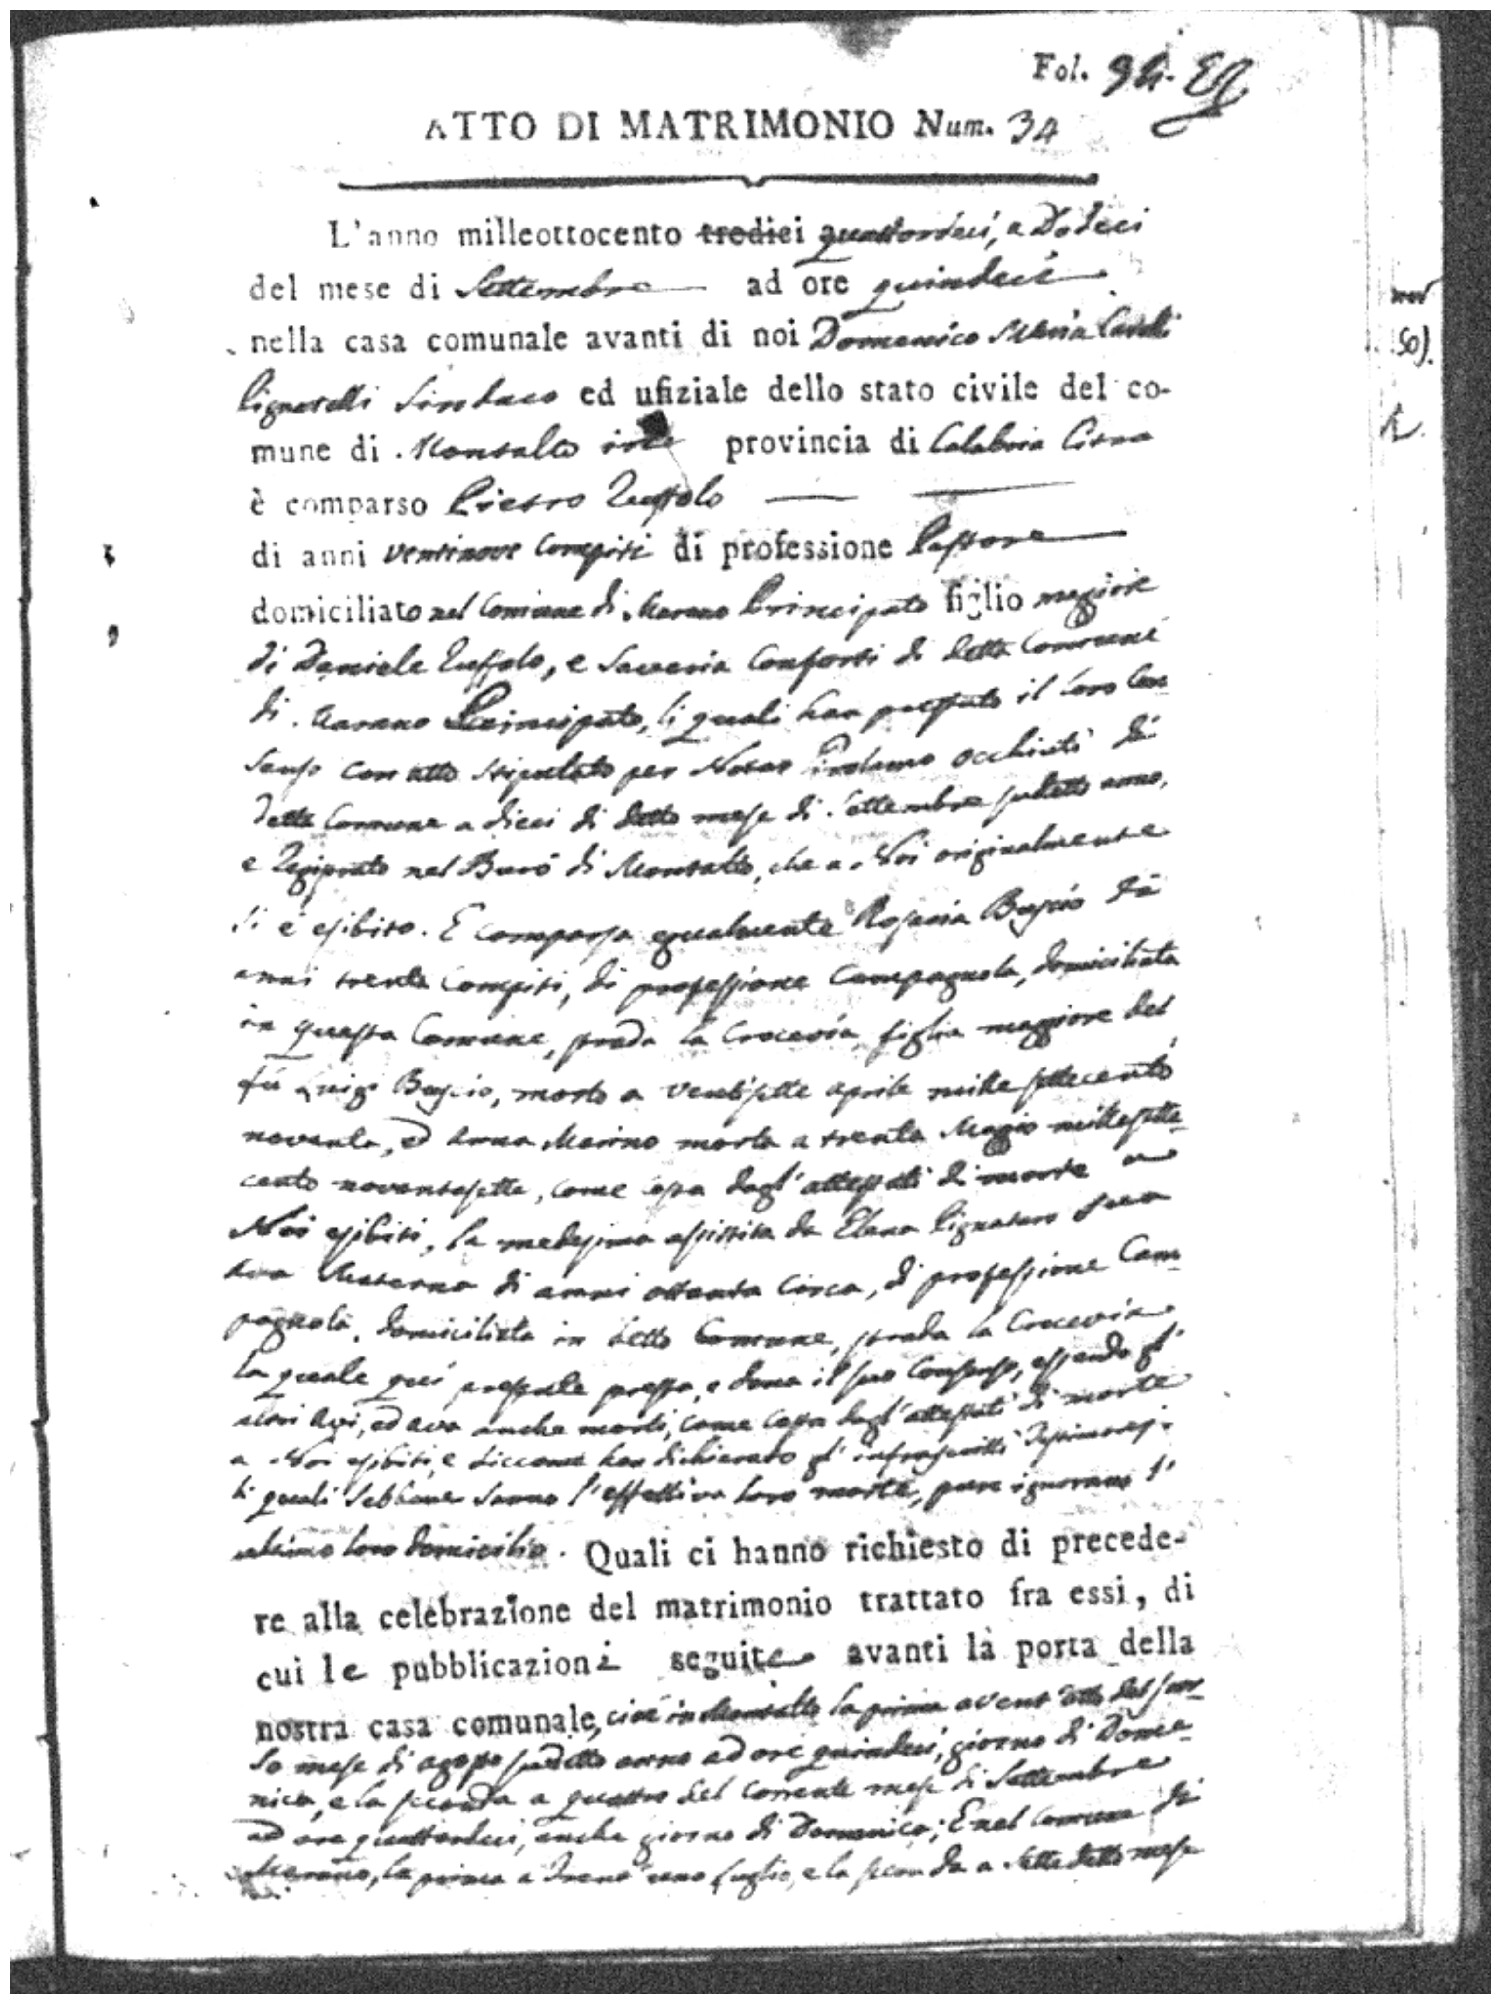 Fol. 94.
ATTO DI MATRIMONIO Num. 34
L'anno milleottocento tredici quattordeci, a Dodeci
del mese di Settembre ad ore quindeci
nella casa comunale avanti di noi Domenico Maria
Pignatelli Sindaco ed ufiziale dello stato civile del co-
mune di Montalto provincia di Calabria Citra
è comparso Pietro Zuffolo
di anni ventinove compiti di professione Pastore
domiciliato nel Comune di Marano Principato figlio maggiore
di Daniele Zuffolo, e Saveria Conforti di detta Comune
di Marano Principato, li quali han prestato il loro Con
senso con atto stipulato per Notar Occhiuti di
detta Comune a dieci di detto mese di Settembre sudetto anno,
e Registrato nel Burò di Montalto, che a Noi originalmente
si è esibito. E comparsa egualmente Rosaria Buscio di
anni trenta compiti, di professione Campagnola, domiciliata
in questa Comune, strada la Crocevia, figlia maggiore del
fù Luigi Buscio, morto a ventisette aprile mille settecento
novanta, ed Anna Marino morta a trenta Maggio millesette
cento novantasette, come costa dagl'attestati di morte a
Noi esibiti, la medesima assistita da Elena Pignataro sua
Ava Materna di anni ottanta circa, di professione Cam
pagnola, domiciliata in detto Comune, strada la Crocevia,
la quale quì presente presta, e dona il suo Consenso, essendo gl'
altri Avi, ed ava anche morti, come costa dagl'attestati di morte
a Noi esibiti, e siccome han dichiarato gl'infrascritti Testimonj.
li quali sebbene sanno l'effettiva loro morte, pure ignorano l'
ultimo loro domicilio. Quali ci hanno richiesto di precede-
re alla celebrazione del matrimonio trattato fra essi, di
cui le pubblicazioni seguite avanti la porta della
nostra casa comunale, cioè in Montalto la prima a vent'otto del scor-
so mese di agosto sudetto anno ad ore quindeci, giorno di Dome-
nica, e la seconda a quattro del corrente mese di Settembre
ad ore quattordeci, anche giorno di Domenica; E nel Comune di
Marano, la prima a trent'uno Luglio, e la seconda a sette detto mese